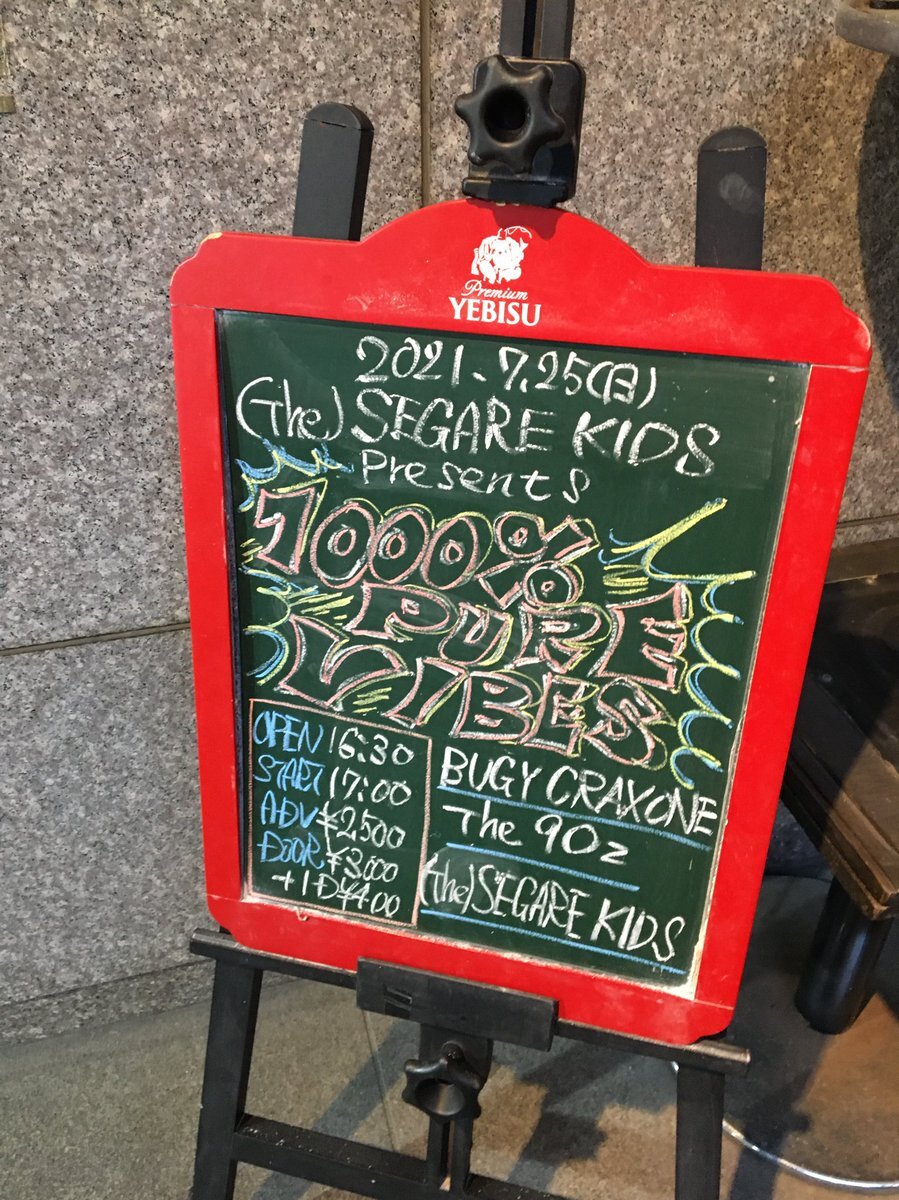 Premium
YEBISU
2021.7.25(日)
(The) SEGARE KIDS
Presents
1000%
PURE
VIBES
OPEN 16:30
START 17:00
ADV ¥2500
DOOR ¥3000
+1D¥400
BUGY CRAXONE
The 90z
(The) SEGARE KIDS